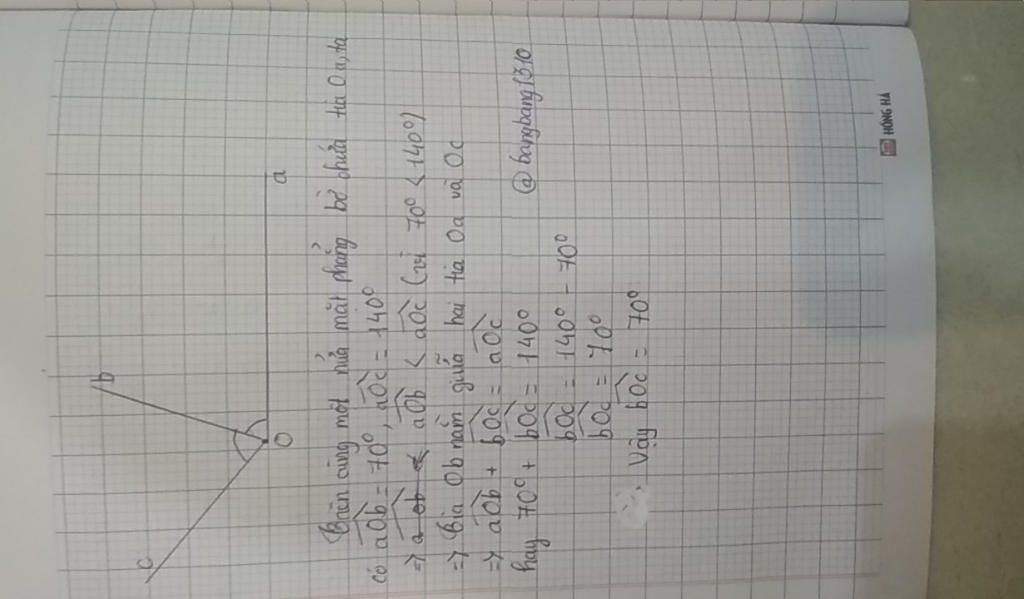 c
b
O
a
Trên cùng một nửa mặt phẳng bờ chứa tia Oa, ta
có aOb = 70°, aOc = 140°
=> aOb < aOc (vì 70° < 140°)
=> Tia Ob nằm giữa hai tia Oa và Oc
=> aOb + bOc = aOc
hay 70° + bOc = 140°
bOc = 140° - 70°
bOc = 70°
Vậy bOc = 70°
@bangbang1310
HỒNG HÀ